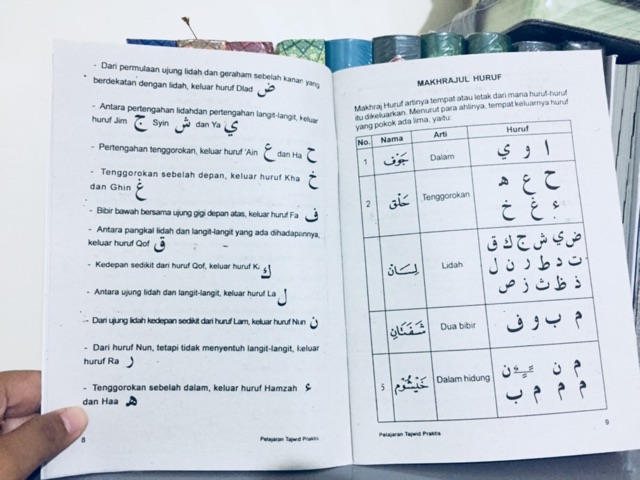 - Dari permulaan ujung lidah dan geraham sebelah kanan yang
berdekatan dengan lidah, keluar huruf Dlad ض
- Antara pertengahan lidahdan pertengahan langit-langit, keluar
huruf Jim ج Syin ش dan Ya ي
- Pertengahan tenggorokan, keluar huruf 'Ain ع dan Ha ح
- Tenggorokan sebelah depan, keluar huruf Kha خ
dan Ghin غ
- Bibir bawah bersama ujung gigi depan atas, keluar huruf Fa ف
- Antara pangkal lidah dan langit-langit yang ada dihadapannya,
keluar huruf Qof ق
- Kedepan sedikit dari huruf Qof, keluar huruf ك
- Antara ujung lidah dan langit-langit, keluar huruf La ل
- Dari ujung lidah kedepan sedikit dari huruf Lam, keluar huruf Nun ن
- Dari huruf Nun, tetapi tidak menyentuh langit-langit, keluar
huruf Ra ر
- Tenggorokan sebelah dalam, keluar huruf Hamzah ء
dan Haa ه
8 Pelajaran Tajwid Praktis
MAKHRAJUL HURUF
Makhraj Huruf artinya tempat atau letak dari mana huruf-huruf
itu dikeluarkan. Menurut para ahlinya, tempat keluarnya huruf
yang pokok ada lima, yaitu:
No. Nama Arti Huruf
1 جَوْف Dalam ا و ي
2 حَلْق Tenggorokan ح ع ه
ء غ خ
لِسَانْ Lidah ض ي ش ج ك ق
ت د ط ر ن ل
ذ ظ ث ز ص
شَفَتَانِ Dua bibir م ب و ف
5 خَيْشُوْم Dalam hidung م ن
م م م ب
Pelajaran Tajwid Praktis 9